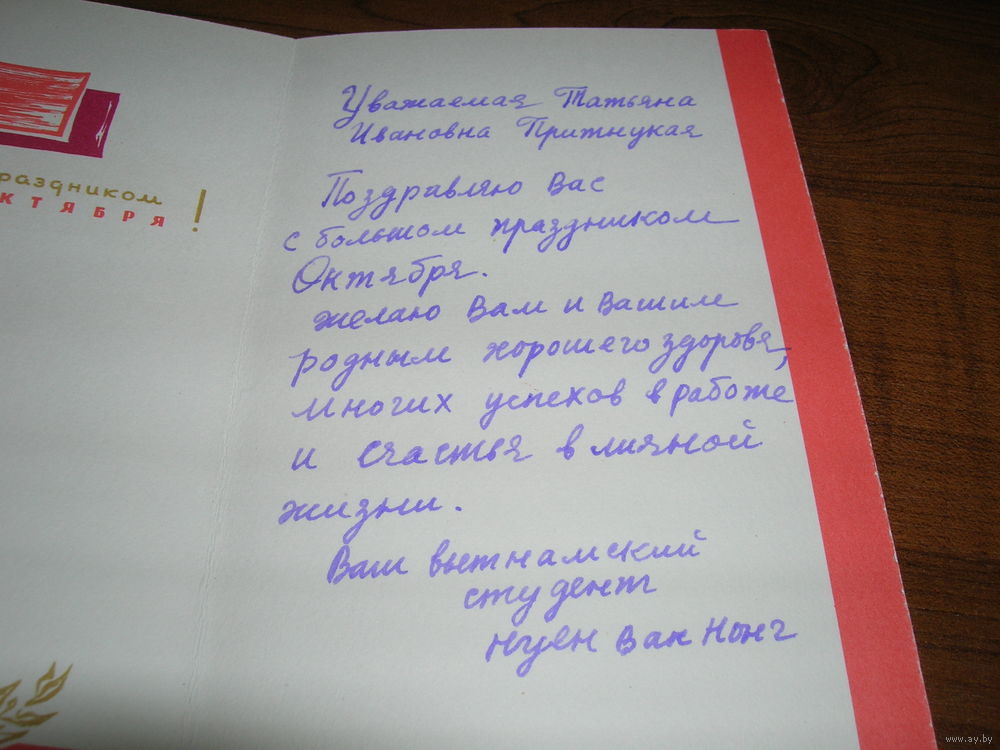 раздником
КТЯБРЯ!
Уважаемая Татьяна
Ивановна Прижнукая
Поздравляю Вас
с большом праздником
Октября.
желаю Вам и Вашим
родным хорошего здоровя,
многих успехов в работе
и счастья в личной
жизни.
Ваш вьетнамский
студент
Нуен Ван Нонг
www.ay.by